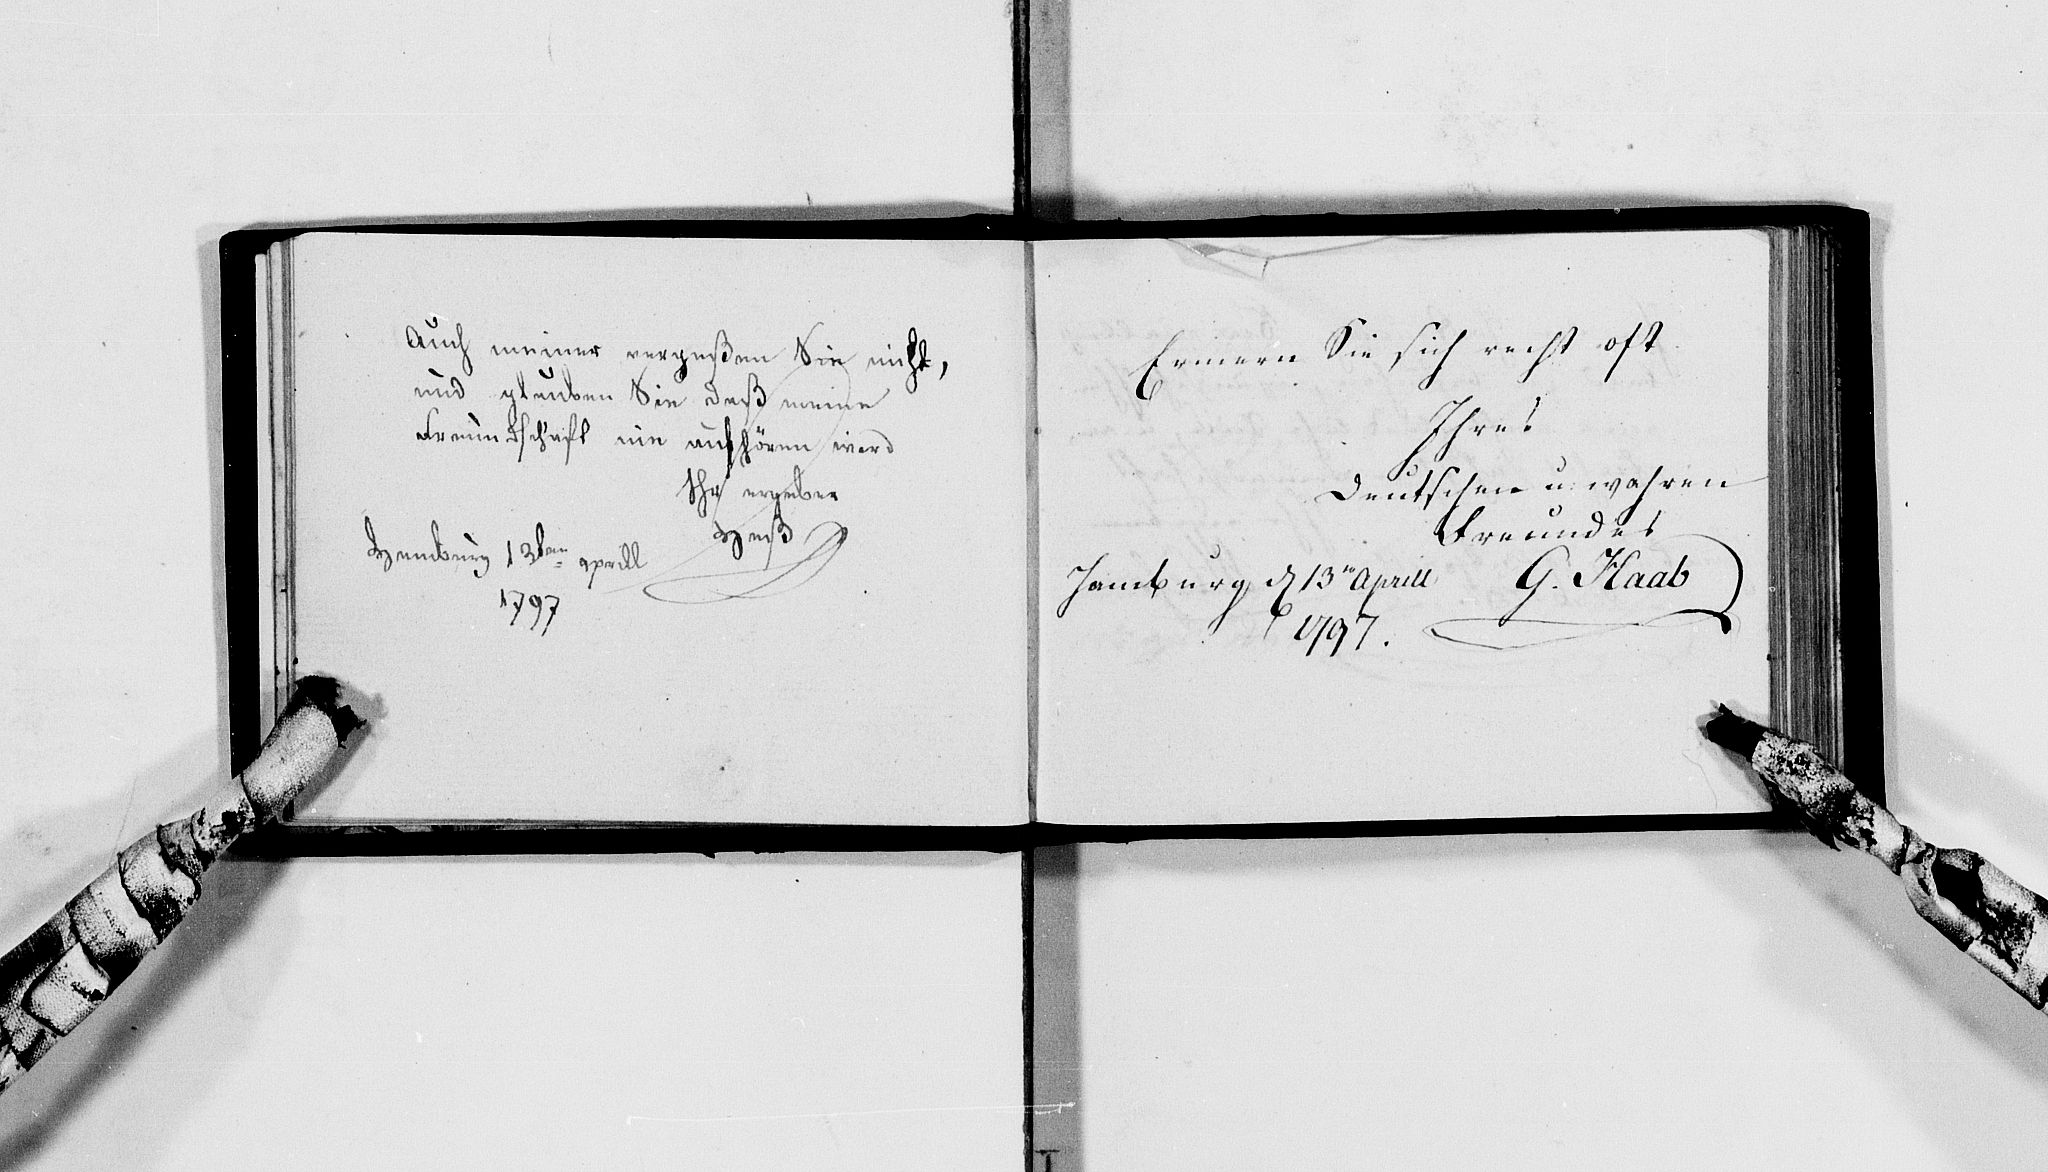 Auch meiner vergeßen Sie nicht,
und glauben Sie daß meine
Freundschaft nie aufhören werd
Ihr ergeber
Heß
Hamburg 13ten aprill
1797
Erinern Sie sich recht oft
Ihres
Deutschen u: wahren
Freundes
G. Haab
Hamburg d 13n Aprill
1797.